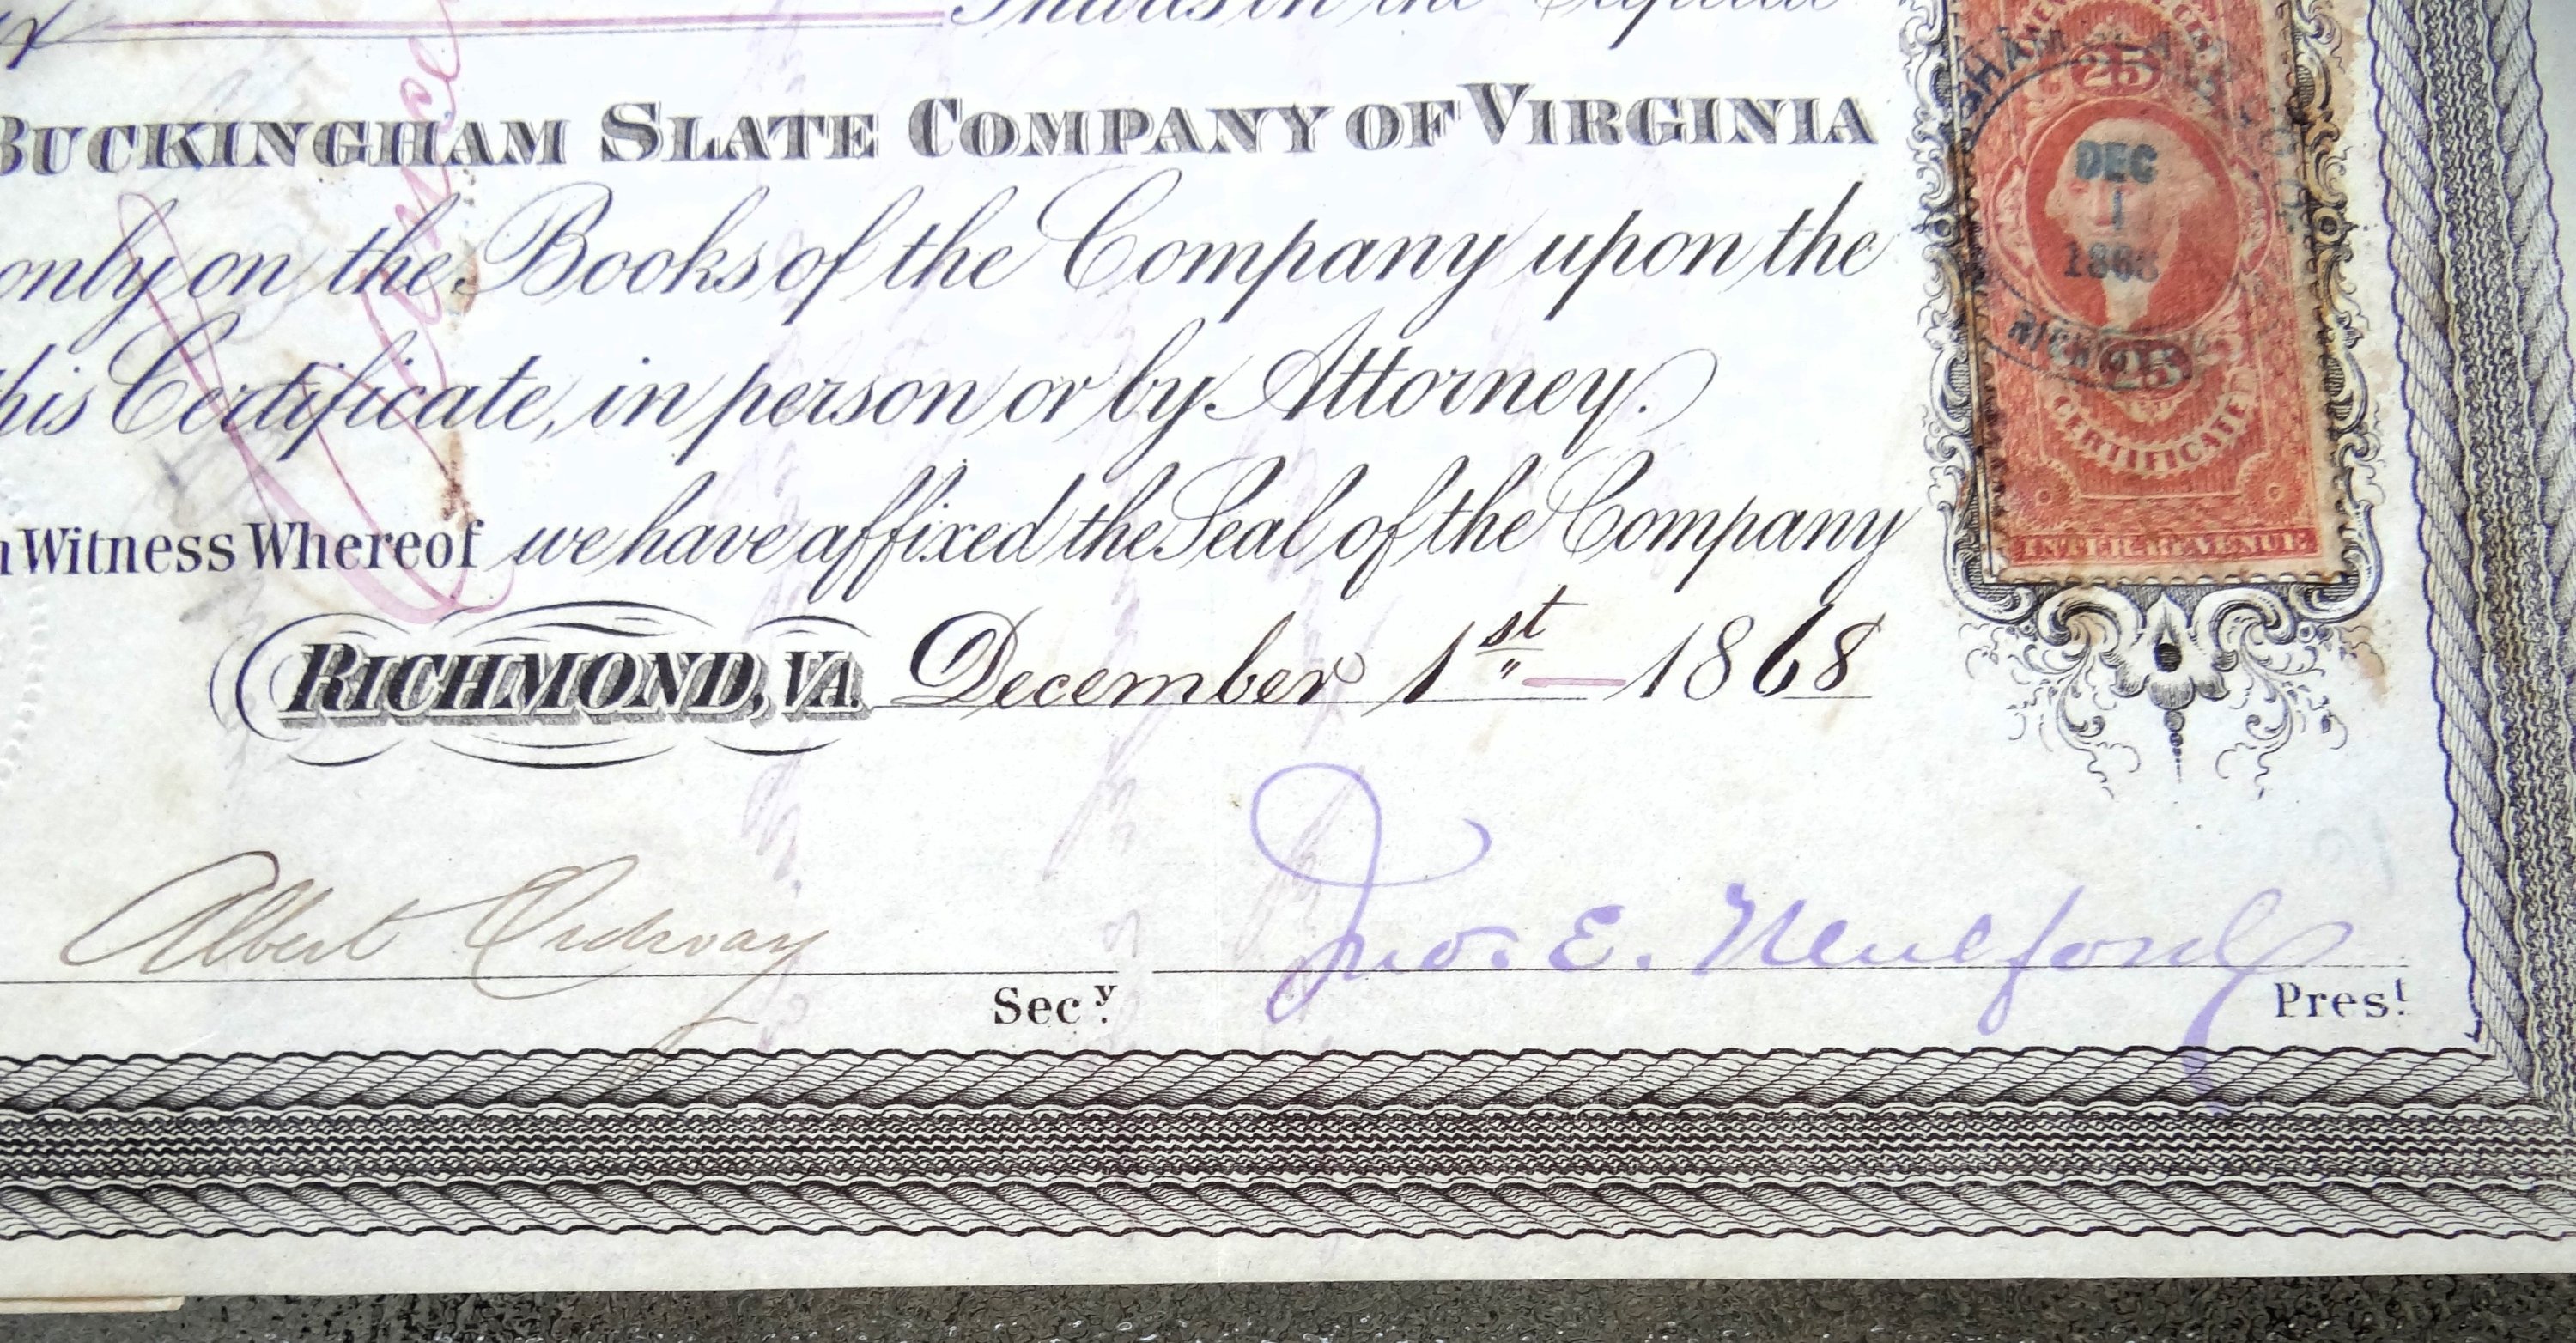 Shares in the Capital
BUCKINGHAM SLATE COMPANY OF VIRGINIA
only on the Books of the Company upon the
this Certificate, in person or by Attorney.
n Witness Whereof we have affixed the Seal of the Company
RICHMOND, VA. December 1st 1868
Albert Ordway
Secy.
Jno. E. Mulford
Prest.
25
DEC
1
1868
25
CERTIFICATE
INTER. REVENUE